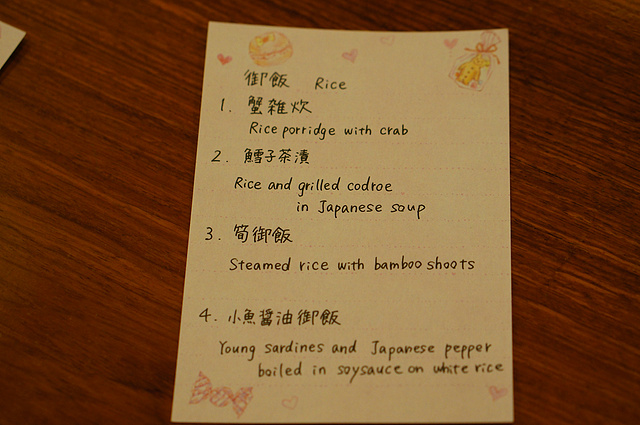 御飯 Rice
1. 蟹雑炊
Rice porridge with crab
2. 鱈子茶漬
Rice and grilled codroe
in Japanese soup
3. 筍御飯
Steamed rice with bamboo shoots
4. 小魚醤油御飯
Young sardines and Japanese pepper
boiled in soysauce on white rice